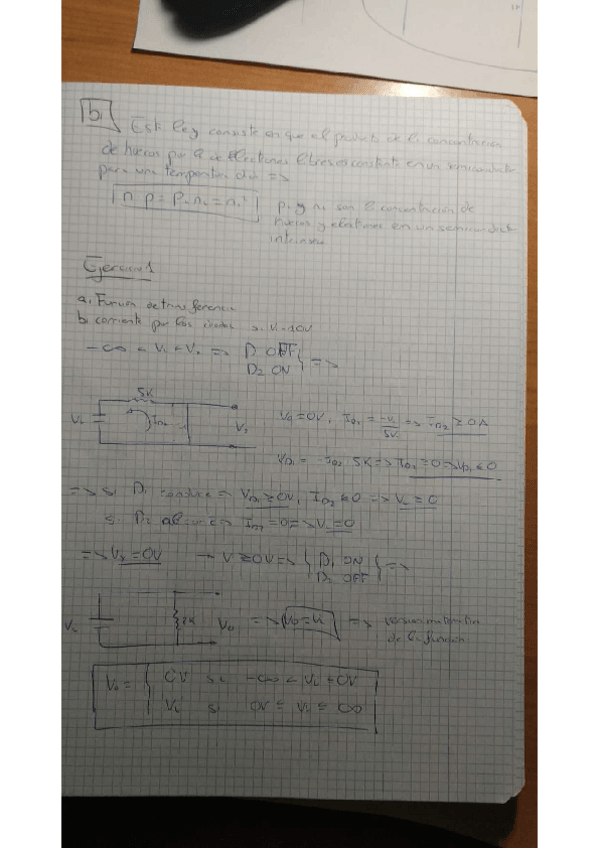 b)
Esta ley consiste en que el producto de la concentración
de huecos por la de electrones libres es constante en un semiconductor
para una temperatura dada =>
n · p = p · nᵢ = nᵢ² pᵢ y nᵢ son la concentración de
huecos y electrones en un semiconductor
intrínseco
Ejercicio 1
a. Función de transferencia
b. corriente por los diodos si Vi = 10V
-∞ < Vi < Vx => D OFF
D2 ON } =>
5K
Vi ID2 Vo
Vo = 0V, ID2 = -Vi/5K => ID2 ≥ 0A
VD1 = -ID2 5K => ID2 ≥ 0 => VD1 ≤ 0
=> si D1 conduce => VD1 ≥ 0V, ID2 ≤ 0 => Vi = 0
si D2 => ID2 = 0 => Vi = 0
=> Vx = 0V → V ≥ 0V => { D1 ON
D2 OFF } =>
Vi 2K Vo => Vo = Vi =>
de la función
Vo = { 0V si -∞ < Vi < 0V
Vi si 0V ≤ Vi ≤ ∞